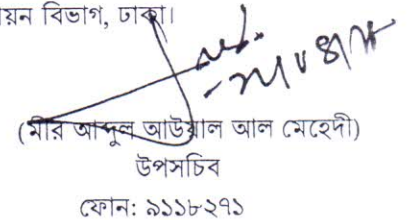 য়ন বিভাগ, ঢাকা।
(মীর আব্দুল আউয়াল আল মেহেদী)
উপসচিব
ফোন: ৯১১৮২৭১